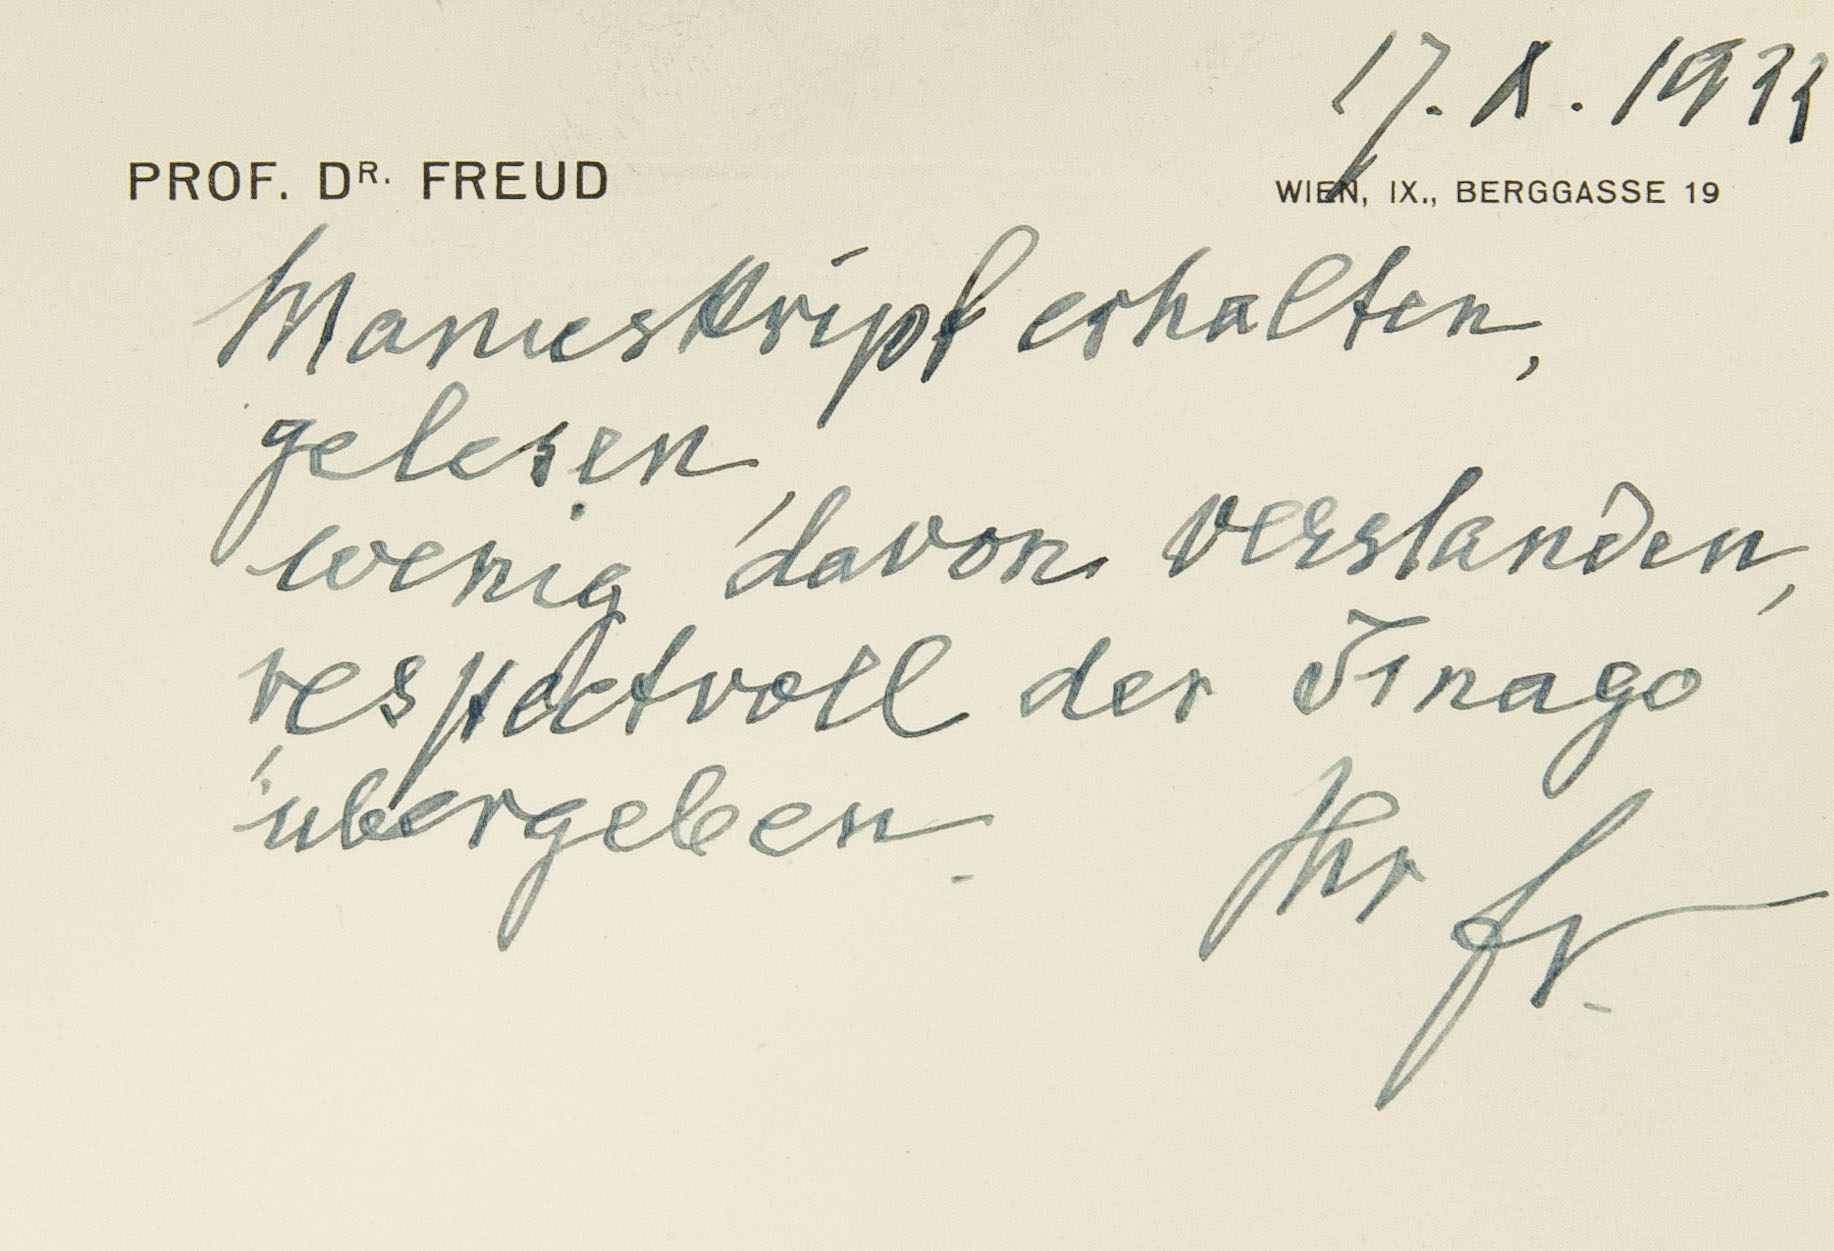 17. X. 1933
PROF. DR. FREUD
WIEN, IX., BERGGASSE 19
Manuskript erhalten,
gelesen,
wenig davon verstanden,
respectvoll der Imago
übergeben.
Ihr Fr.